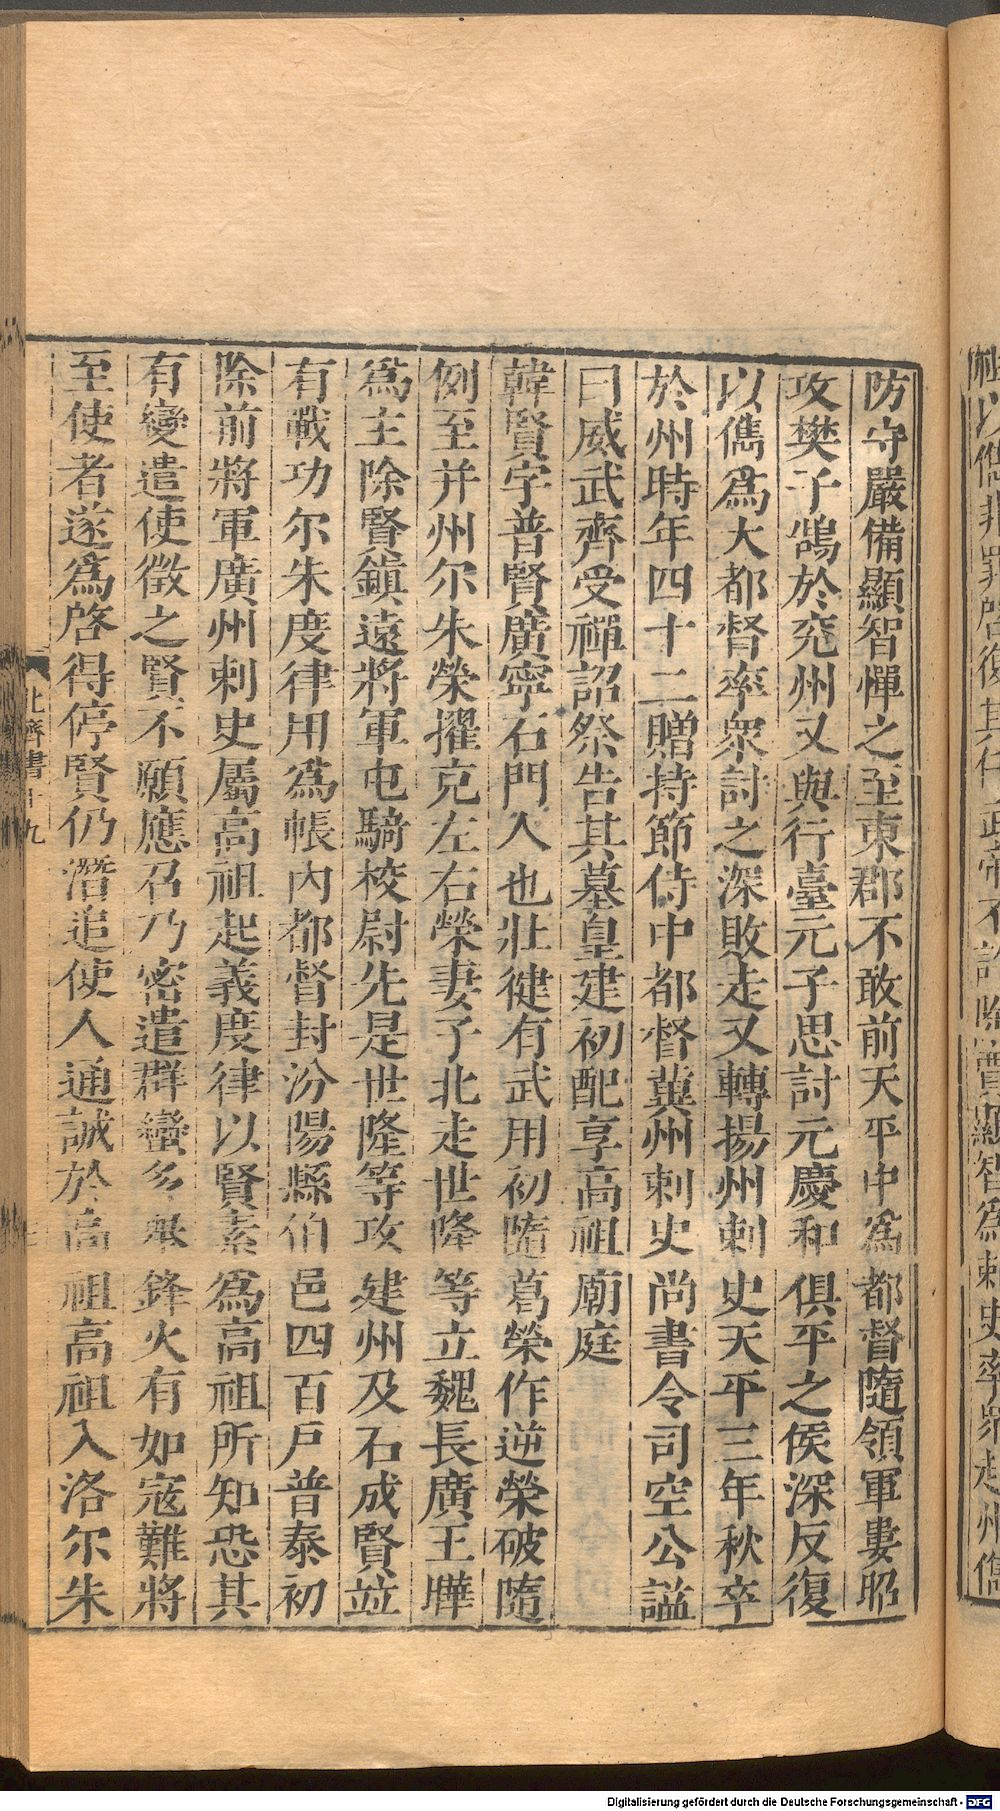 防守嚴備顯智憚之至東郡不敢前天平中爲都督隨領軍婁昭
攻樊子鵠於兖州又與行臺元子思討元慶和俱平之侯深反復
以儁爲大都督率衆討之深敗走又轉揚州刺史天平三年秋卒
於州時年四十二贈持節侍中都督冀州刺史尚書令司空公謚
曰威武齊受禪詔祭告其墓皇建初配享高祖廟庭
韓賢字普賢廣寧石門人也壯健有武用初隨葛榮作逆榮破隨
例至并州尒朱榮擢充左右榮妻子北走世隆等立魏長廣王曄
爲主除賢鎮遠將軍屯騎校尉先是世隆等攻建州及石成賢並
有戰功尒朱度律用爲帳內都督封汾陽縣伯邑四百戶普泰初
除前將軍廣州刺史屬高祖起義度律以賢素爲高祖所知恐其
有變遣使徵之賢不願應召乃密遣群蠻多舉鋒火有如寇難將
至使者遂爲啓得停賢仍潛追使人通誠於高祖高祖入洛尒朱
北齊書十九
Digitalisierung gefördert durch die Deutsche Forschungsgemeinschaft - DFG